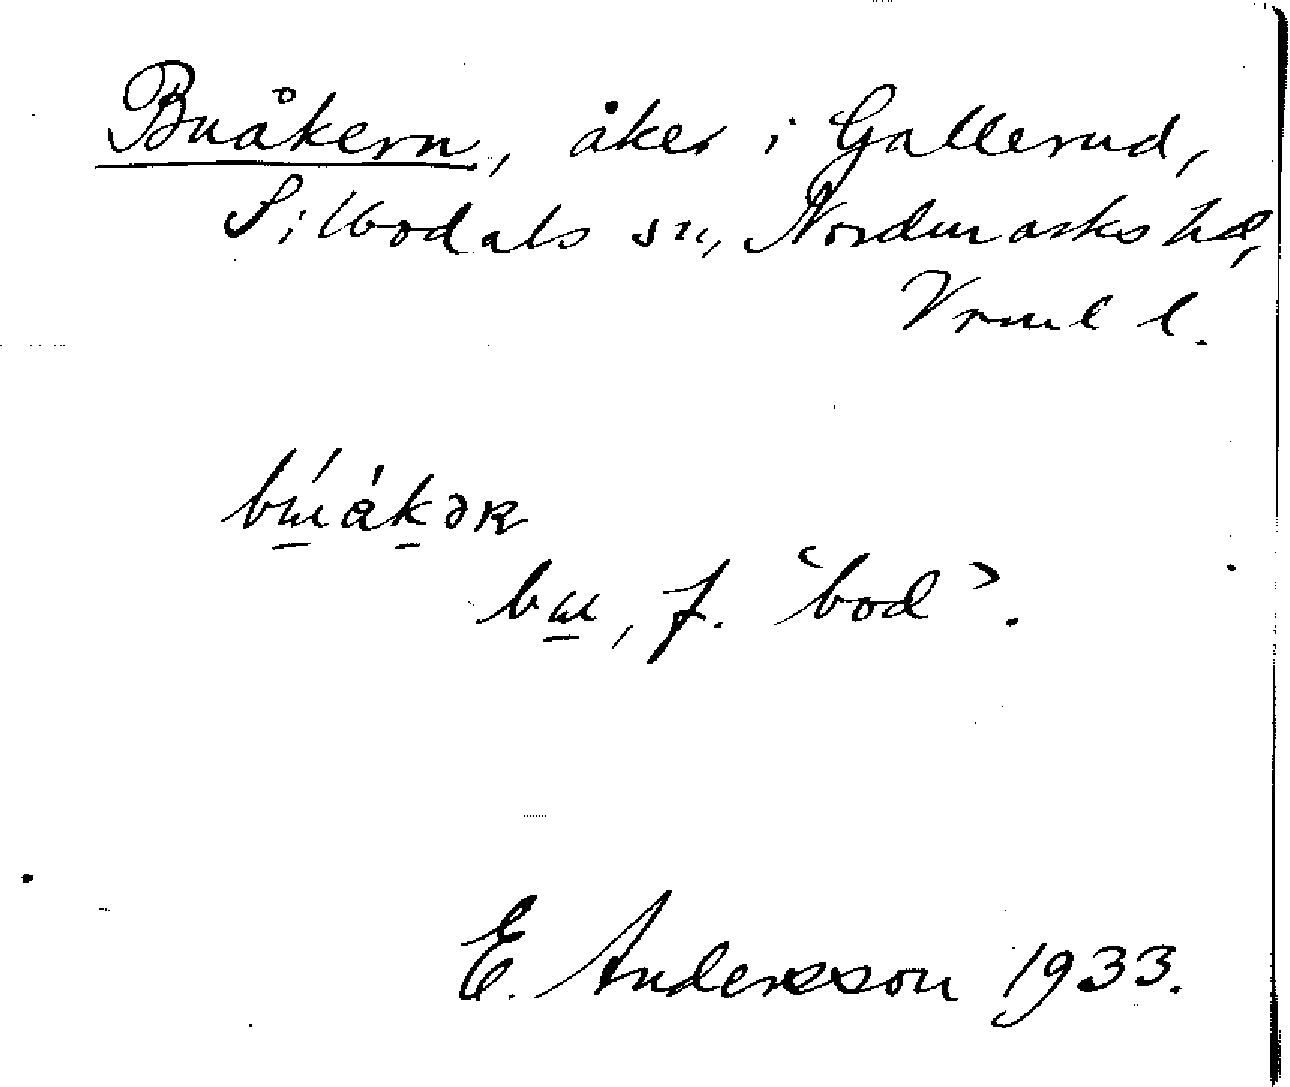 Buåkern, åker i Gallerud,
Silbodals sn, Nordmarks hd,
Vrml l.
bɯ́åkəʀ
bɯ, f. ‘bod’.
E. Andersson 1933.